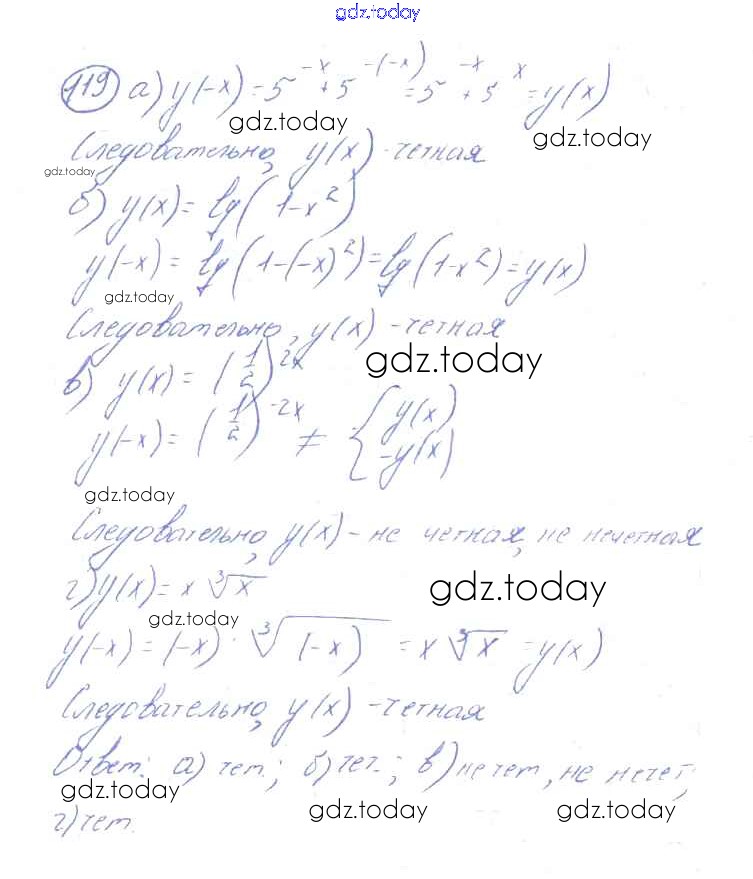 gdz.today
119 а) y(-x) = 5^{-x} + 5^{-(-x)} = 5^{-x} + 5^{x} = y(x)
gdz.today gdz.today
Следовательно, y(x) - четная
gdz.today
б) y(x) = lg(1-x²)
y(-x) = lg(1-(-x)²) = lg(1-x²) = y(x)
gdz.today
Следовательно, y(x) - четная
gdz.today
в) y(x) = (1/2)^{2x}
y(-x) = (1/2)^{-2x} ≠ { y(x) -y(x)
gdz.today
Следовательно, y(x) - не четная, не нечетная
г) y(x) = x ∛x
gdz.today gdz.today
y(-x) = (-x) · ∛(-x) = x ∛x = y(x)
Следовательно, y(x) - четная
Ответ: а) чет.; б) чет.; в) не чет, не нечет;
gdz.today gdz.today gdz.today
г) чет.